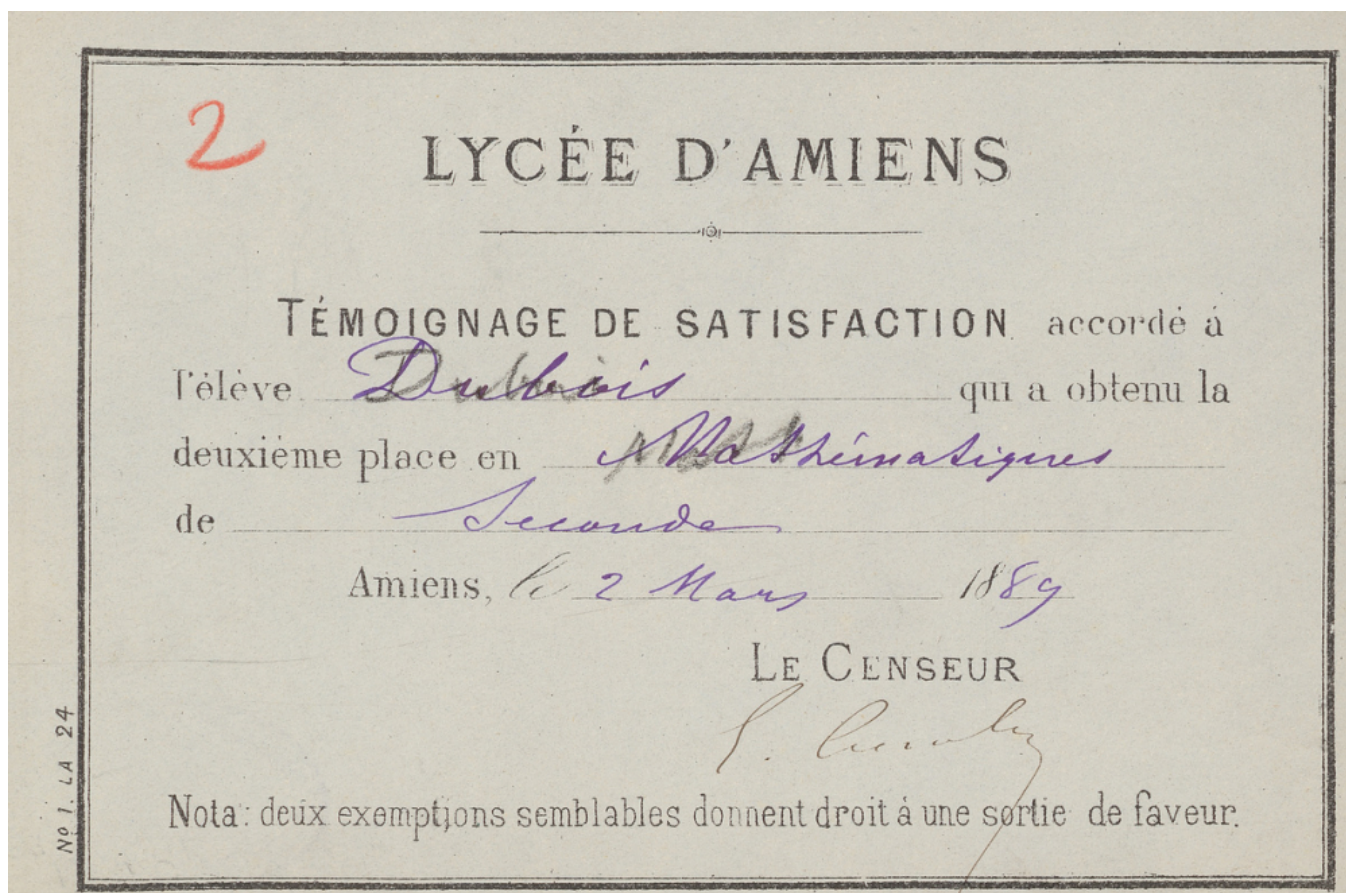 2
LYCÉE D'AMIENS
TÉMOIGNAGE DE SATISFACTION accordé à
l'élève Dubois qui a obtenu la
deuxième place en Mathématiques
de Seconde
Amiens, le 2 Mars 1889
LE CENSEUR
Nota: deux exemptions semblables donnent droit à une sortie de faveur.
Nº 1. LA 24